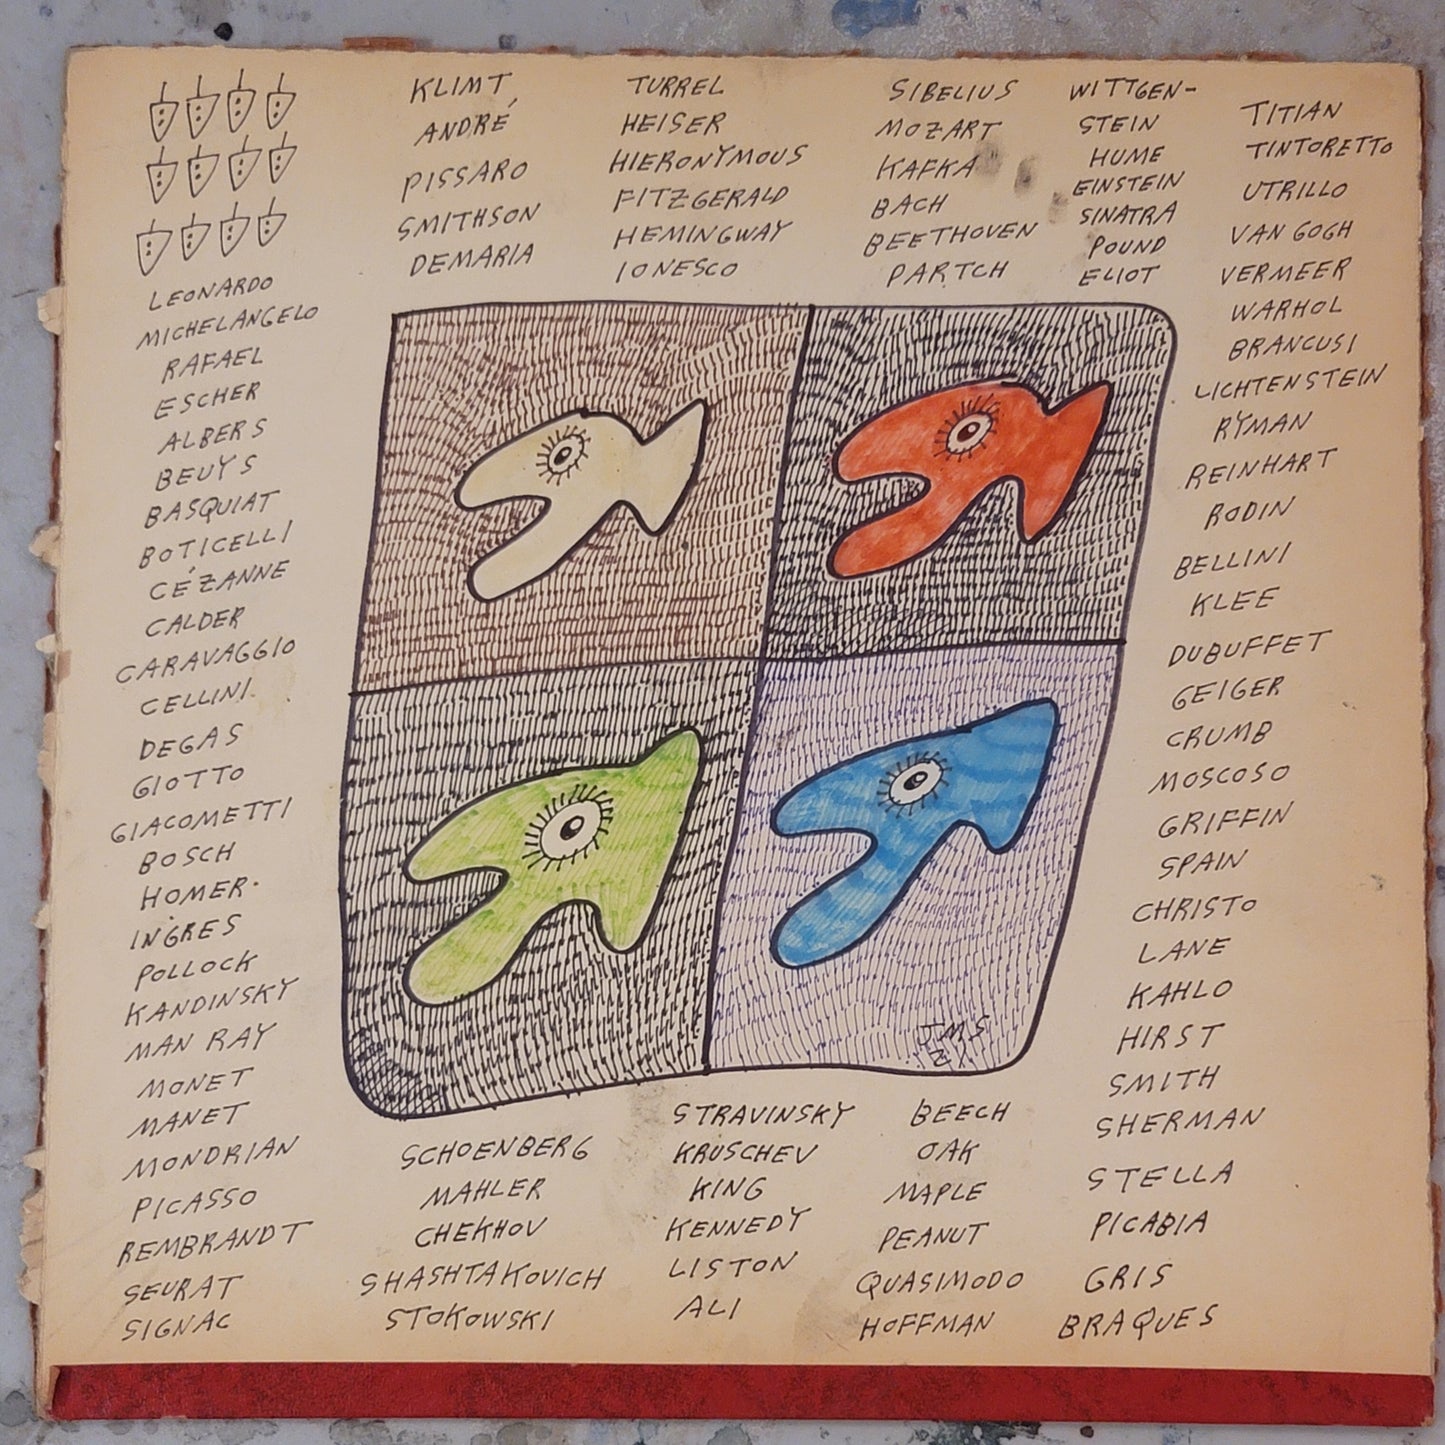 LEONARDO
MICHELANGELO
RAFAEL
ESCHER
ALBERS
BEUYS
BASQUIAT
BOTICELLI
CÉZANNE
CALDER
CARAVAGGIO
CELLINI
DEGAS
GIOTTO
GIACOMETTI
BOSCH
HOMER
INGRES
POLLOCK
KANDINSKY
MAN RAY
MONET
MANET
MONDRIAN
PICASSO
REMBRANDT
SEURAT
SIGNAC
KLIMT
ANDRÉ
PISSARO
SMITHSON
DEMARIA
TURREL
HEISER
HIERONYMOUS
FITZGERALD
HEMINGWAY
IONESCO
SIBELIUS
MOZART
KAFKA
BACH
BEETHOVEN
PARTCH
WITTGEN-
STEIN
HUME
EINSTEIN
SINATRA
POUND
ELIOT
TITIAN
TINTORETTO
UTRILLO
VAN GOGH
VERMEER
WARHOL
BRANCUSI
LICHTENSTEIN
RYMAN
REINHART
RODIN
BELLINI
KLEE
DUBUFFET
GEIGER
CRUMB
MOSCOSO
GRIFFIN
SPAIN
CHRISTO
LANE
KAHLO
HIRST
SMITH
SHERMAN
STELLA
PICABIA
GRIS
BRAQUES
JMS
SCHOENBERG
MAHLER
CHEKHOV
SHASHTAKOVICH
STOKOWSKI
STRAVINSKY
KRUSCHEV
KING
KENNEDY
LISTON
ALI
BEECH
OAK
MAPLE
PEANUT
QUASIMODO
HOFFMAN